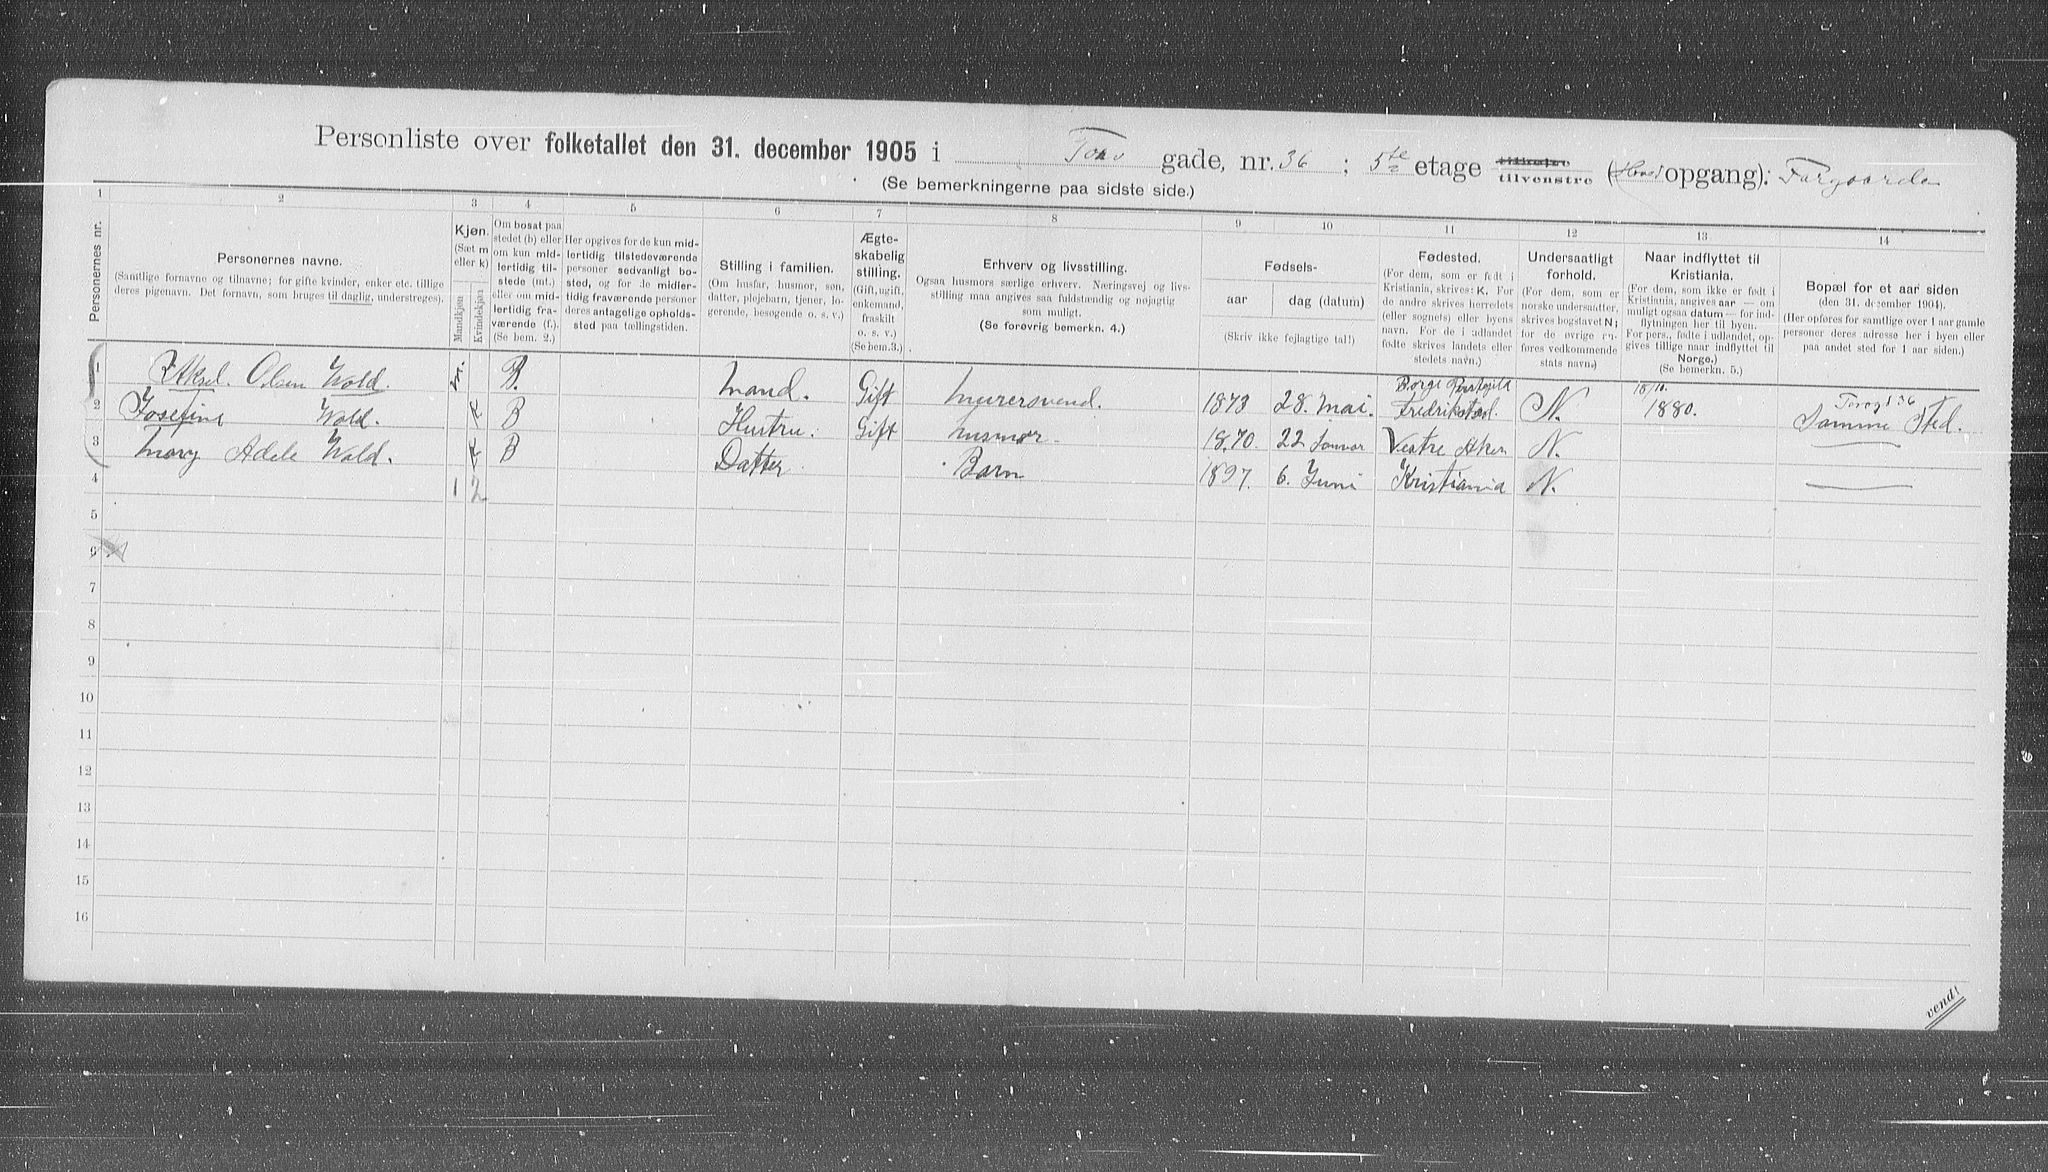 Personliste over folketallet den 31. december 1905 i Torv gade, nr. 36 ; 5te etage tilhøire tilvenstre ( opgang): Forgaarden
(Se bemerkningerne paa sidste side.)
1 2 3 4 5 6 7 8 9 10 11 12 13 14
Personernes nr.
Personernes navne.
(Samtlige fornavne og tilnavne; for gifte kvinder, enker etc. tillige
deres pigenavn. Det fornavn, som bruges til daglig, understreges).
Kjøn.
(Sæt m
eller k)
Mandkjøn
Kvindekjøn
Om bosat paa
stedet (b) eller
om kun mid-
lertidig til-
stede (mt.)
eller om mid-
lertidig fra-
værende (f.).
(Se bem. 2.)
Her opgives for de kun mid-
lertidig tilstedeværende
personer sedvanligt bo-
sted, og for de midler-
tidig fraværende personer
deres antagelige opholds-
sted paa tællingstiden.
Stilling i familien.
(Om husfar, husmor, søn,
datter, plejebarn, tjener, lo-
gerende, besøgende o. s. v.)
Ægte-
skabelig
stilling.
(Gift, ugift,
enkemand,
fraskilt
o. s. v.)
(Se bem.3.)
Erhverv og livsstilling.
Ogsaa husmors særlige erhverv. Næringsvej og livs-
stilling maa angives saa fuldstændig og nøjagtig
som muligt.
(Se forøvrig bemerkn. 4.)
Fødsels-
aar
dag (datum)
(Skriv ikke fejlagtige tal!)
Fødested.
(For dem, som er født i
Kristiania, skrives: K. For
de andre skrives herredets
(eller sognets) eller byens
navn. For de i udlandet
fødte skrives landets eller
stedets navn.)
Undersaatligt
forhold.
(For dem, som er
norske undersaatter,
skrives bogstavet N;
for de øvrige an-
føres vedkommende
stats navn.)
Naar indflyttet til
Kristiania.
(For dem, som ikke er født i
Kristiania, angives aar — om
muligt ogsaa datum — for ind-
flytningen her til byen.
For pers., fødte i udlandet, op-
gives tillige naar indflyttet til
Norge.)
(Se bemerkn. 5.)
Bopæl for et aar siden
(den 31. december 1904).
(Her opføres for samtlige over 1 aar gamle
personer deres adresse her i byen eller
paa andet sted for 1 aar siden.)
1 Aksel Olsen Wold. m. B. Mand. Gift Murersvend. 1873 28. Mai. Borge Fredrikstad. N. 15/10 1880. Torvgd 36 Samme Sted.
2 Josefine Wold. k B Hustru. Gift Husmor. 1870. 22 Januar Vestre Aker N.
3 Mary Adele Wold. k B Datter Barn 1897. 6. Juni Kristiania N.
4 1 2
5
6
7
8
9
10
11
12
13
14
15
16
vend!